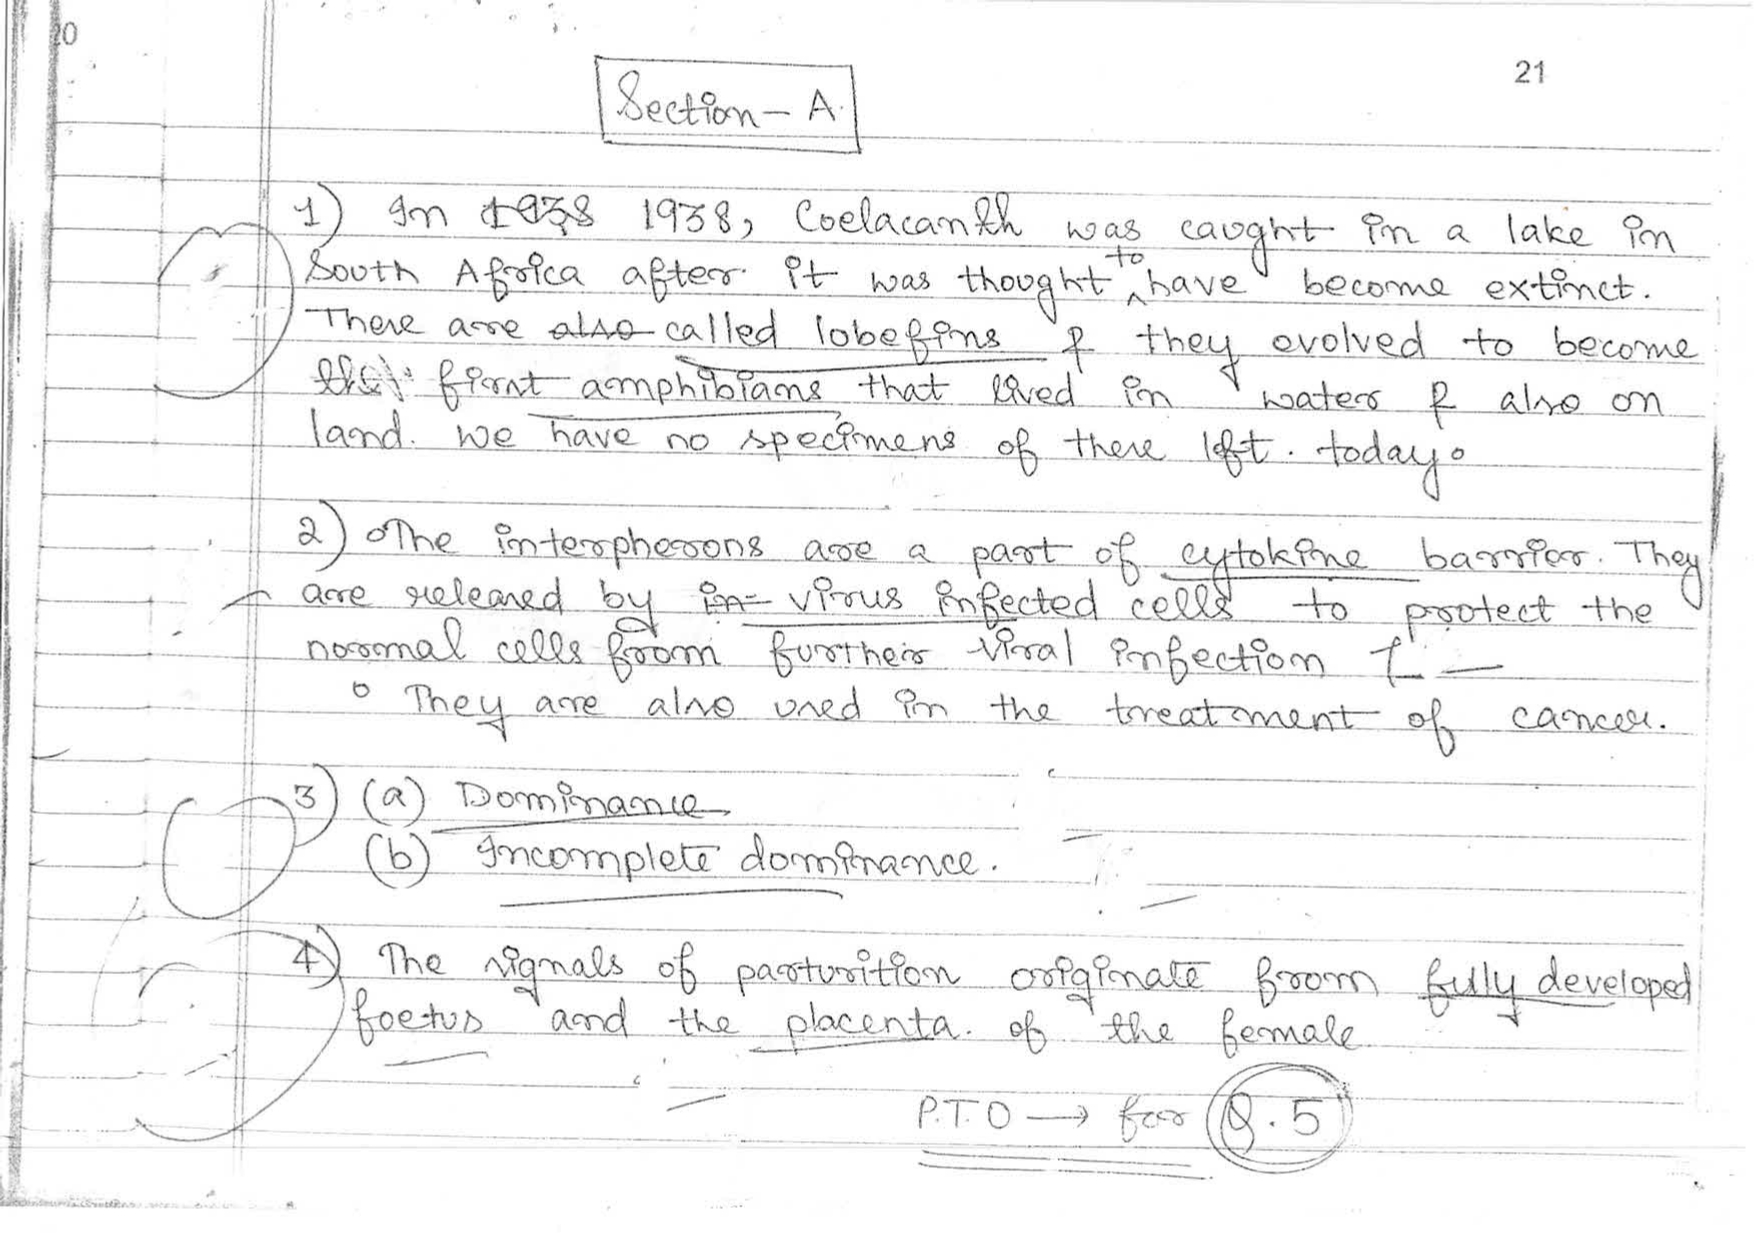 20
21
Section - A.
1) In 1938 1938, Coelacanth was caught in a lake in
South Africa after it was thought to have become extinct.
These are also called lobefins & they evolved to become
the first amphibians that lived in water & also on
land. We have no specimens of these left. today.
2) The interpherons are a part of cytokine barrier. They
are released by in- virus infected cells to protect the
normal cells from further viral infection
They are also used in the treatment of cancer.
3) (a) Dominance
(b) Incomplete dominance.
4) The signals of parturition originate from fully developed
foetus and the placenta. of the female
P.T.O → for Q.5